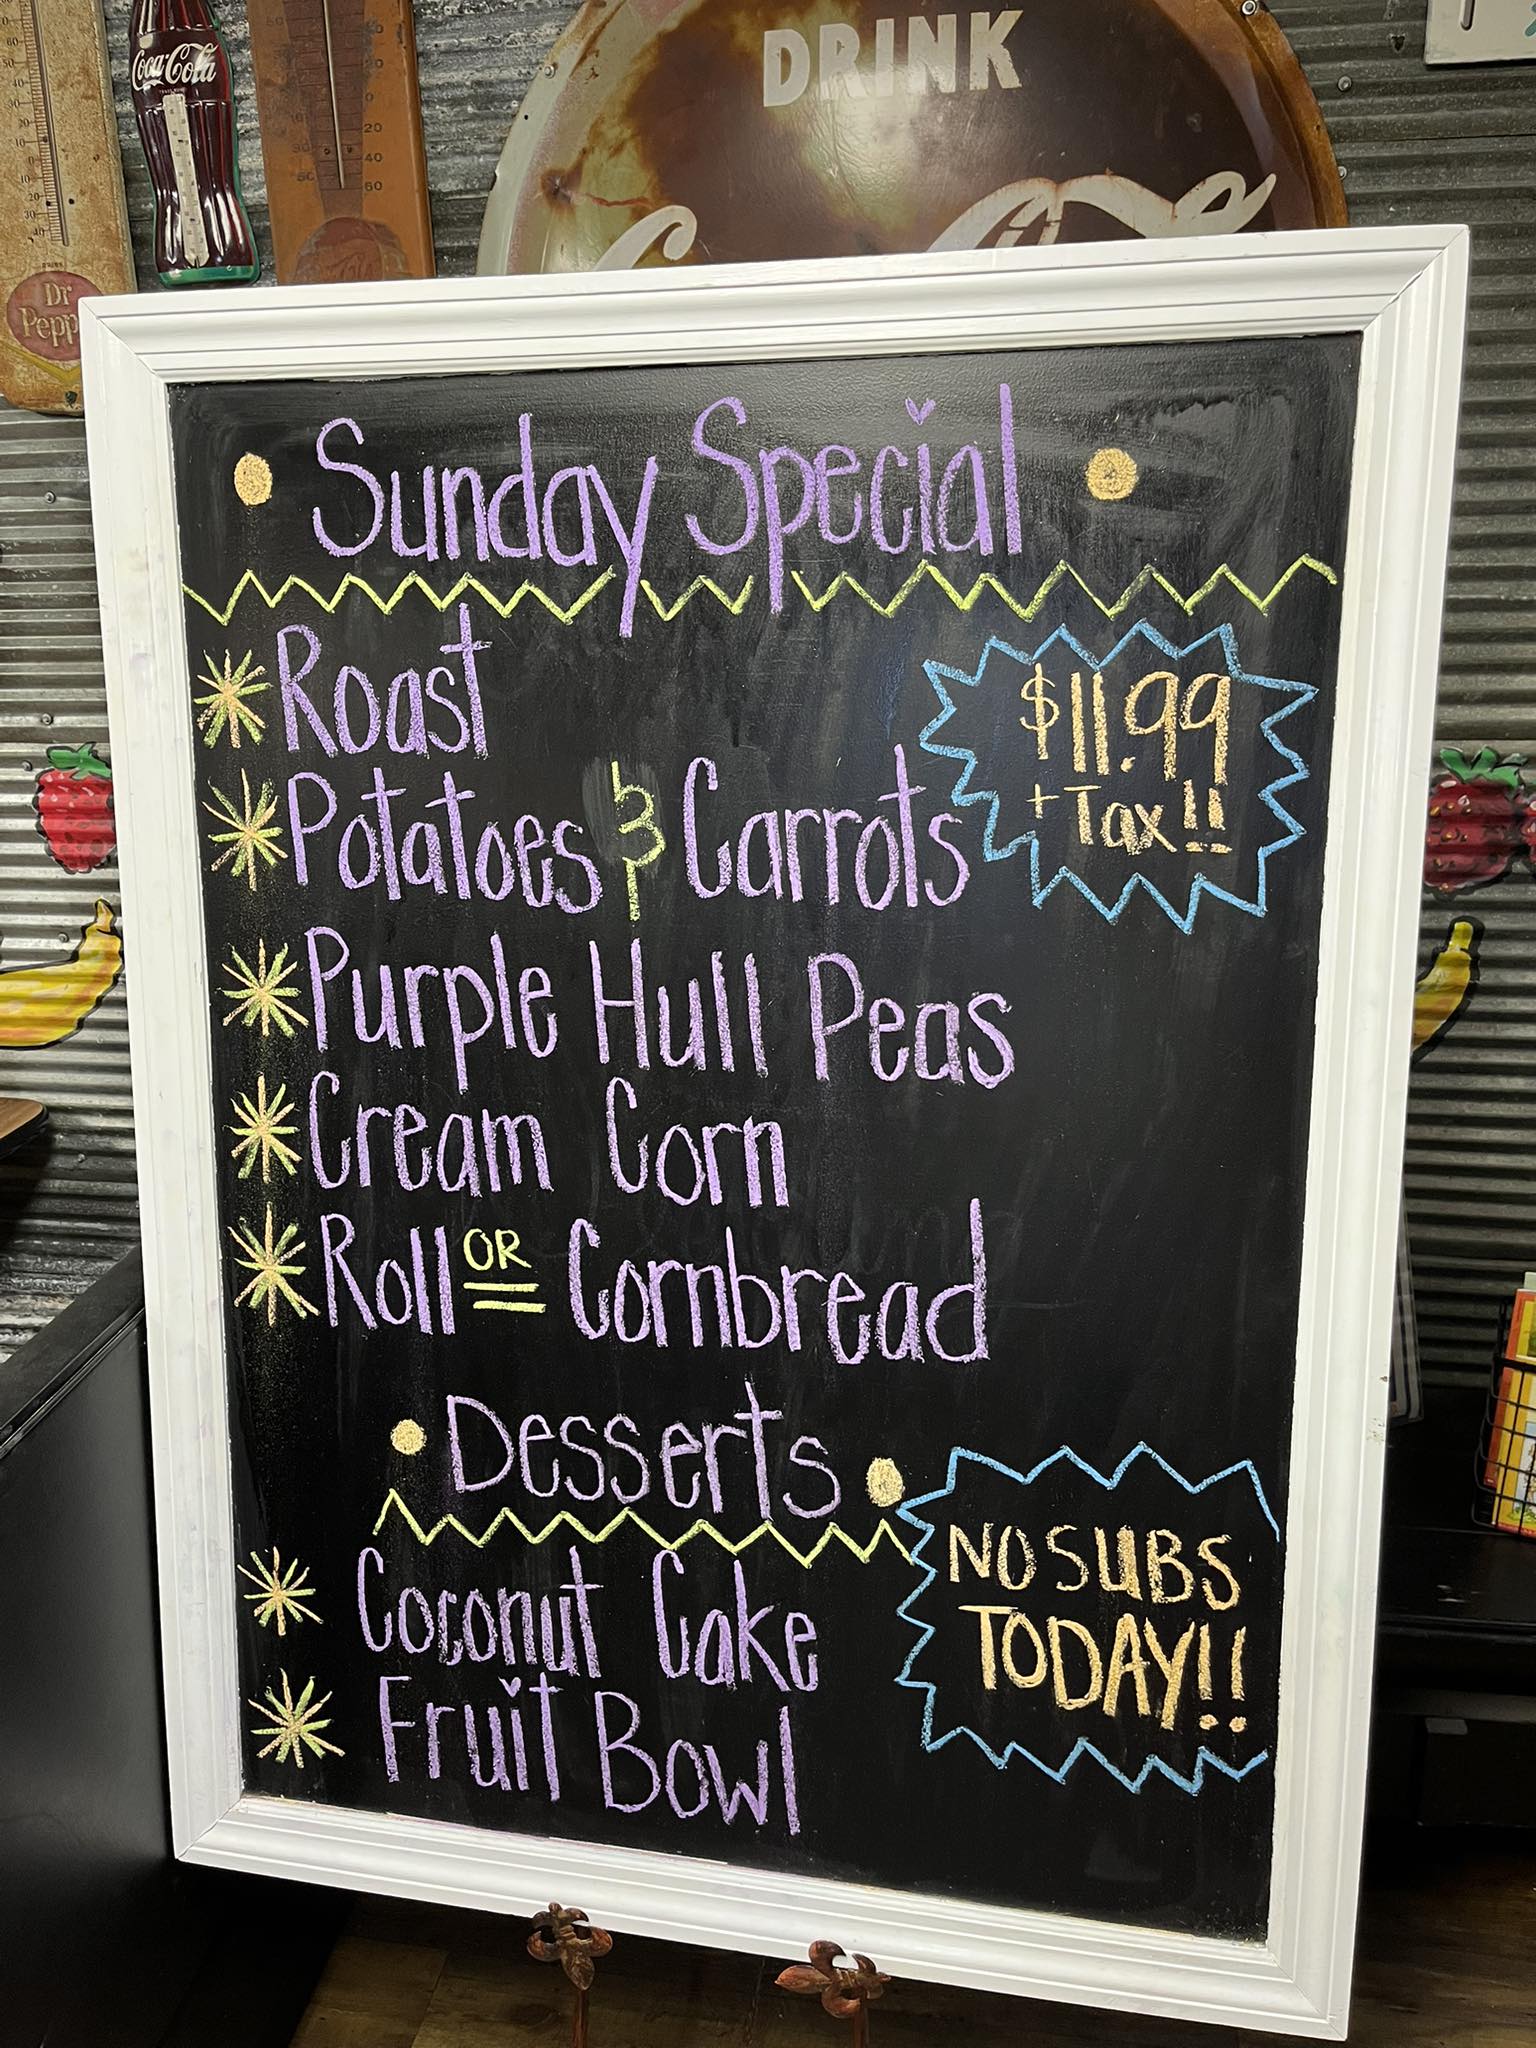 Coca-Cola
DRINK
Dr
Sunday Special
Roast
$11.99
+ Tax!!
Potatoes & Carrots
Purple Hull Peas
Cream Corn
Roll OR Cornbread
Desserts
NO SUBS
TODAY!!
Coconut Cake
Fruit Bowl